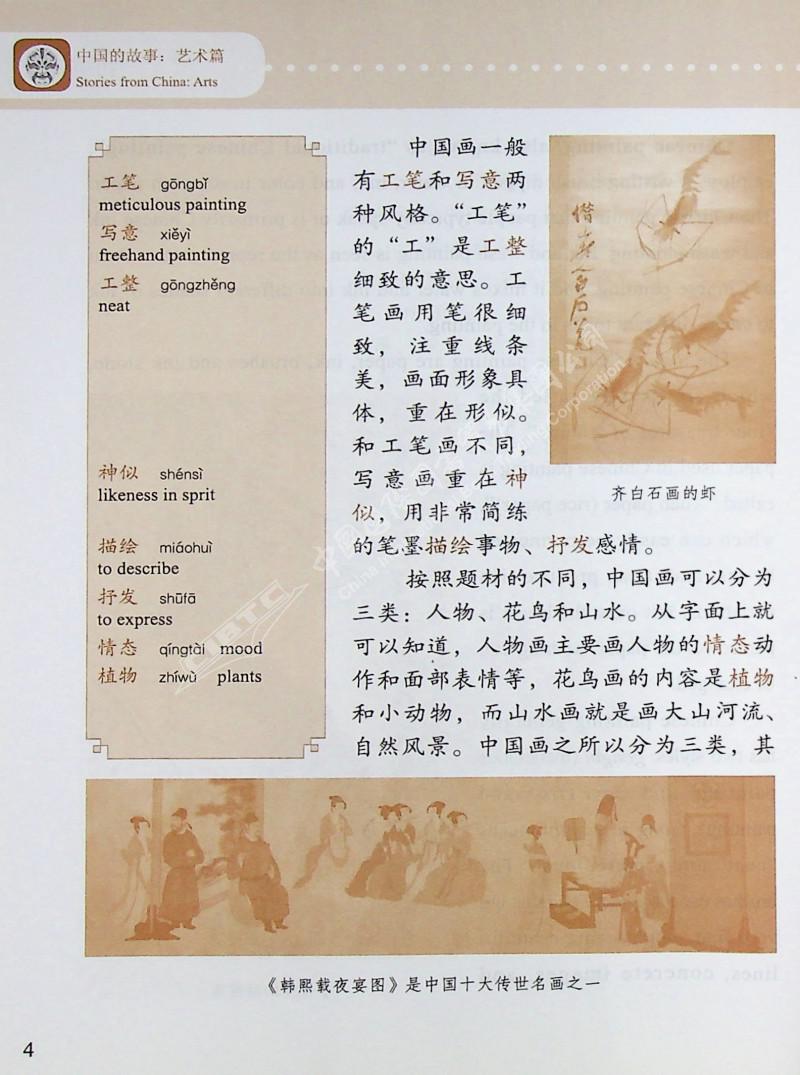 中国的故事：艺术篇
Stories from China: Arts
工笔 gōngbǐ
meticulous painting
写意 xiěyì
freehand painting
工整 gōngzhěng
neat
神似 shénsì
likeness in sprit
描绘 miáohuì
to describe
抒发 shūfā
to express
情态 qíngtài mood
植物 zhíwù plants
中国画一般
有工笔和写意两
种风格。“工笔”
的“工”是工整
细致的意思。工
笔画用笔很细
致，注重线条
美，画面形象具
体，重在形似。
和工笔画不同，
写意画重在神
似，用非常简练
的笔墨描绘事物、抒发感情。
齐白石画的虾
按照题材的不同，中国画可以分为
三类：人物、花鸟和山水。从字面上就
可以知道，人物画主要画人物的情态动
作和面部表情等，花鸟画的内容是植物
和小动物，而山水画就是画大山河流、
自然风景。中国画之所以分为三类，其
《韩熙载夜宴图》是中国十大传世名画之一
4